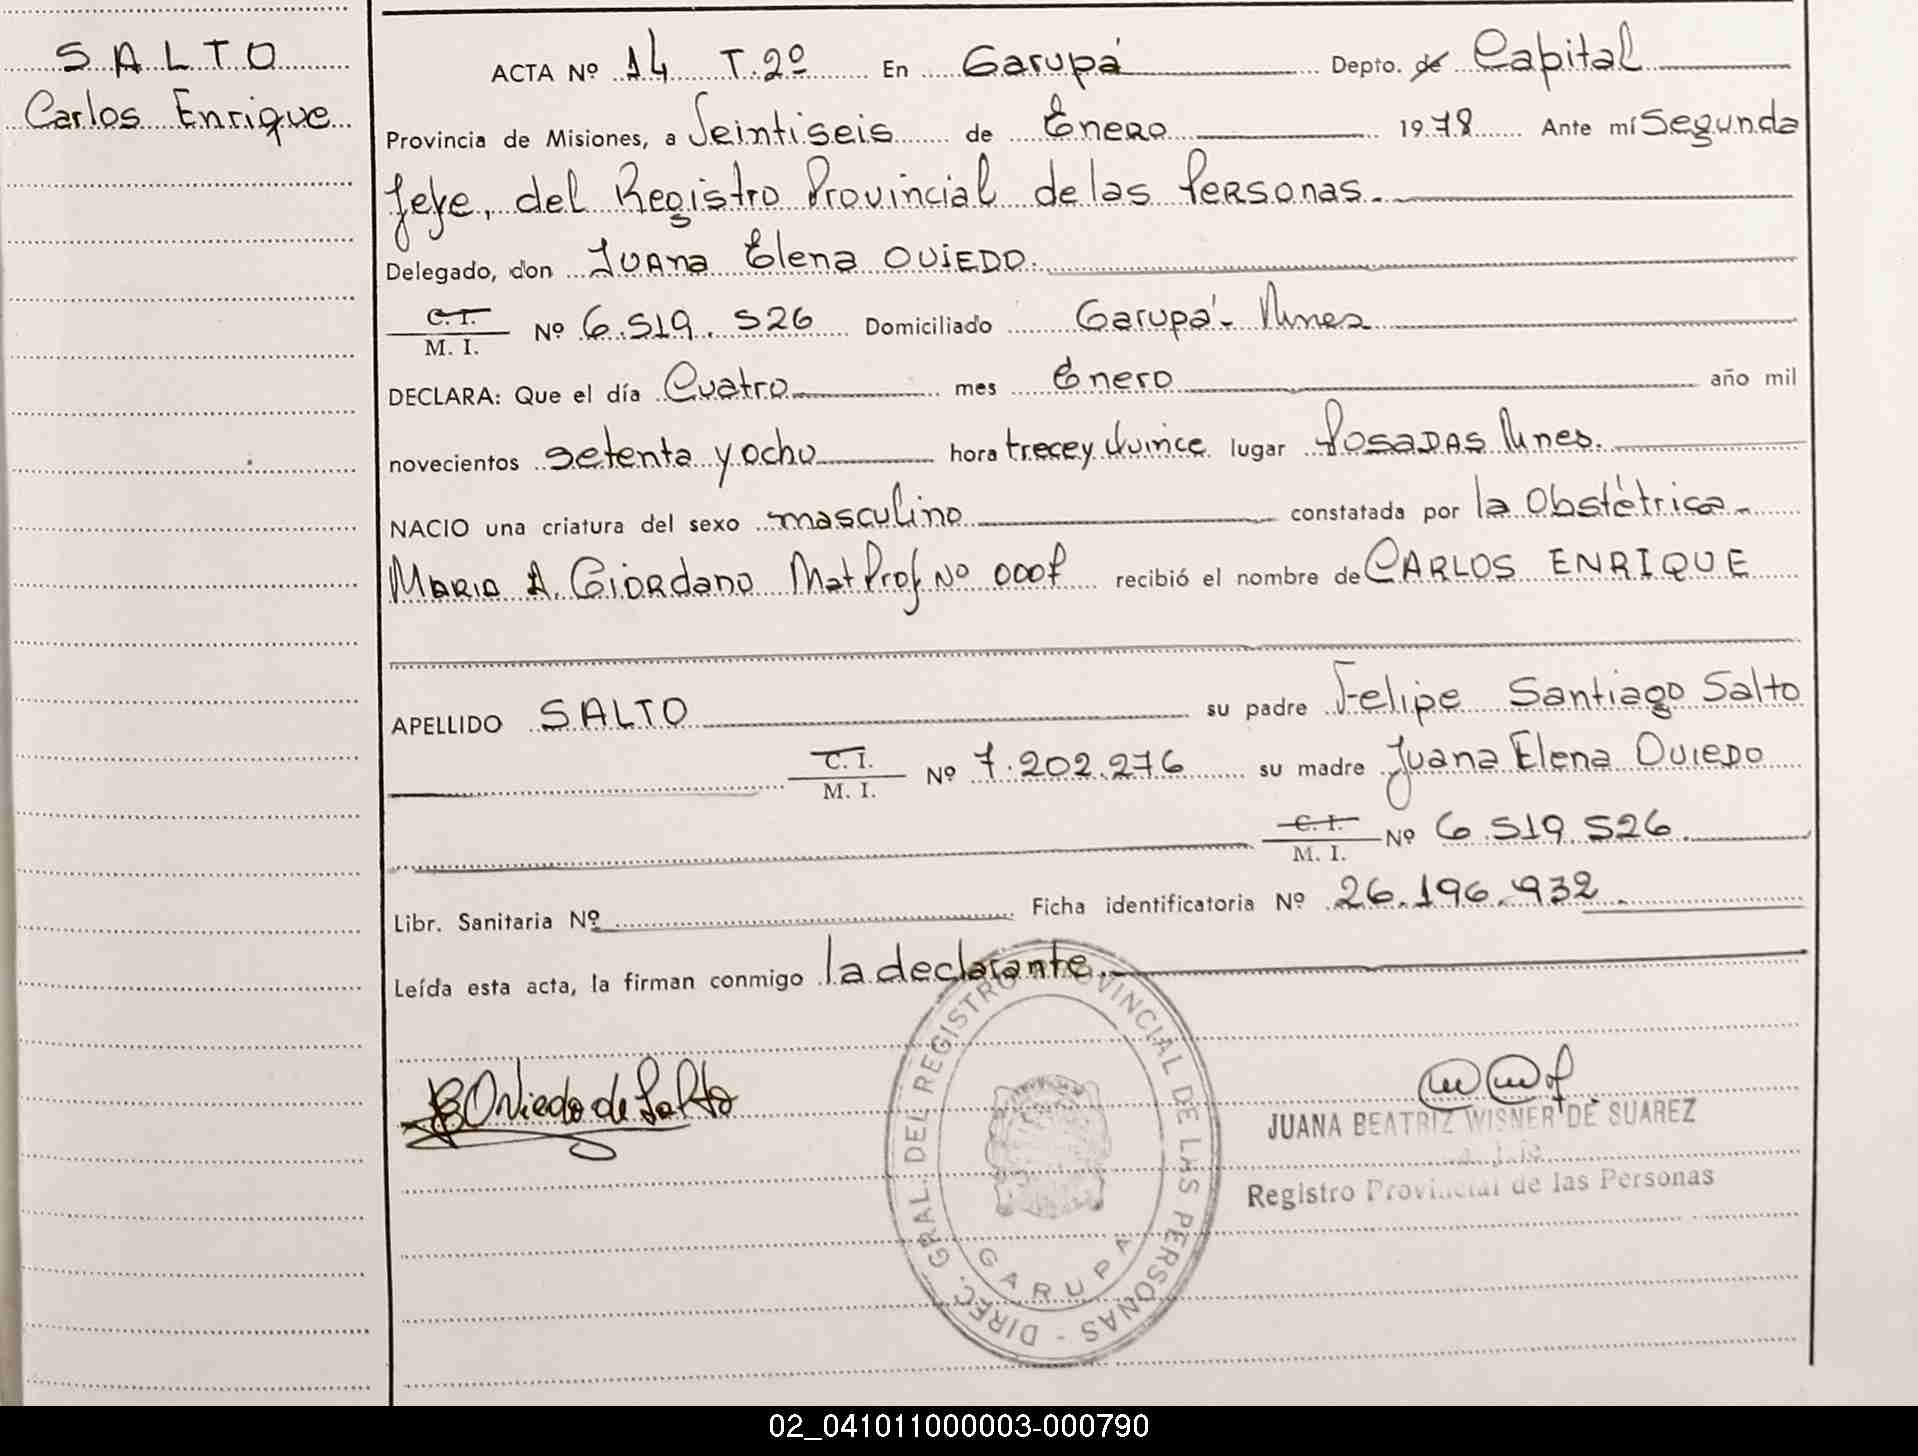 SALTO
Carlos Enrique
ACTA Nº 14 T.2º En Garupá Depto. de Capital
Provincia de Misiones, a Veintiseis de Enero 1978 Ante mí Segunda
Jefe, del Registro Provincial de las Personas.
Delegado, don Juana Elena OVIEDO.
C. I.
M. I. Nº 6.519.526 Domiciliado Garupá - Mnes
DECLARA: Que el día Cuatro mes Enero año mil
novecientos setenta y ocho hora trece y Quince lugar Posadas Mnes.
NACIO una criatura del sexo masculino constatada por la Obstétrica
Maria A. Giordano Mat Prof Nº 000 recibió el nombre de CARLOS ENRIQUE
APELLIDO SALTO su padre Felipe Santiago Salto
C. I.
M. I. Nº 7.202.276 su madre Juana Elena Oviedo
C. I.
M. I. Nº 6.519.526
Libr. Sanitaria Nº Ficha identificatoria Nº 26.196.932
Leída esta acta, la firman conmigo la declarante.
Oviedo de Salto
JUANA BEATRIZ WISNER DE SUAREZ
Registro Provincial de las Personas
DIREC. GRAL. DEL REGISTRO PROVINCIAL DE LAS PERSONAS -
GARUPA
02_041011000003-000790